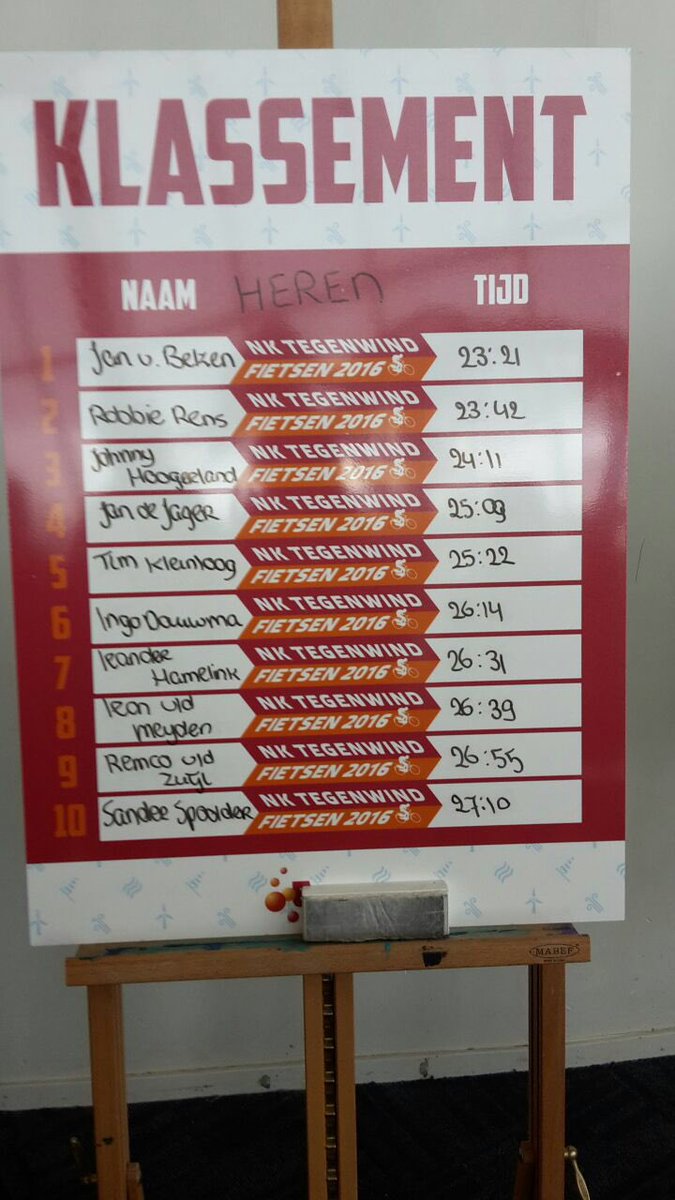 KLASSEMENT
NAAM HEREN TIJD
1 Jan v. Belzen NK TEGENWIND FIETSEN 2016 23:21
2 Robbie Rens NK TEGENWIND FIETSEN 2016 23:42
3 Johnny Hoogerland NK TEGENWIND FIETSEN 2016 24:11
4 Jan de Jager NK TEGENWIND FIETSEN 2016 25:09
5 Tim Kleinloog NK TEGENWIND FIETSEN 2016 25:22
6 Ingo Dauwma NK TEGENWIND FIETSEN 2016 26:14
7 leander Hamelink NK TEGENWIND FIETSEN 2016 26:31
8 leon v/d meyden NK TEGENWIND FIETSEN 2016 26:39
9 Remco v/d NK TEGENWIND FIETSEN 2016 26:55
10 Sander NK TEGENWIND FIETSEN 2016 27:10
MABEF